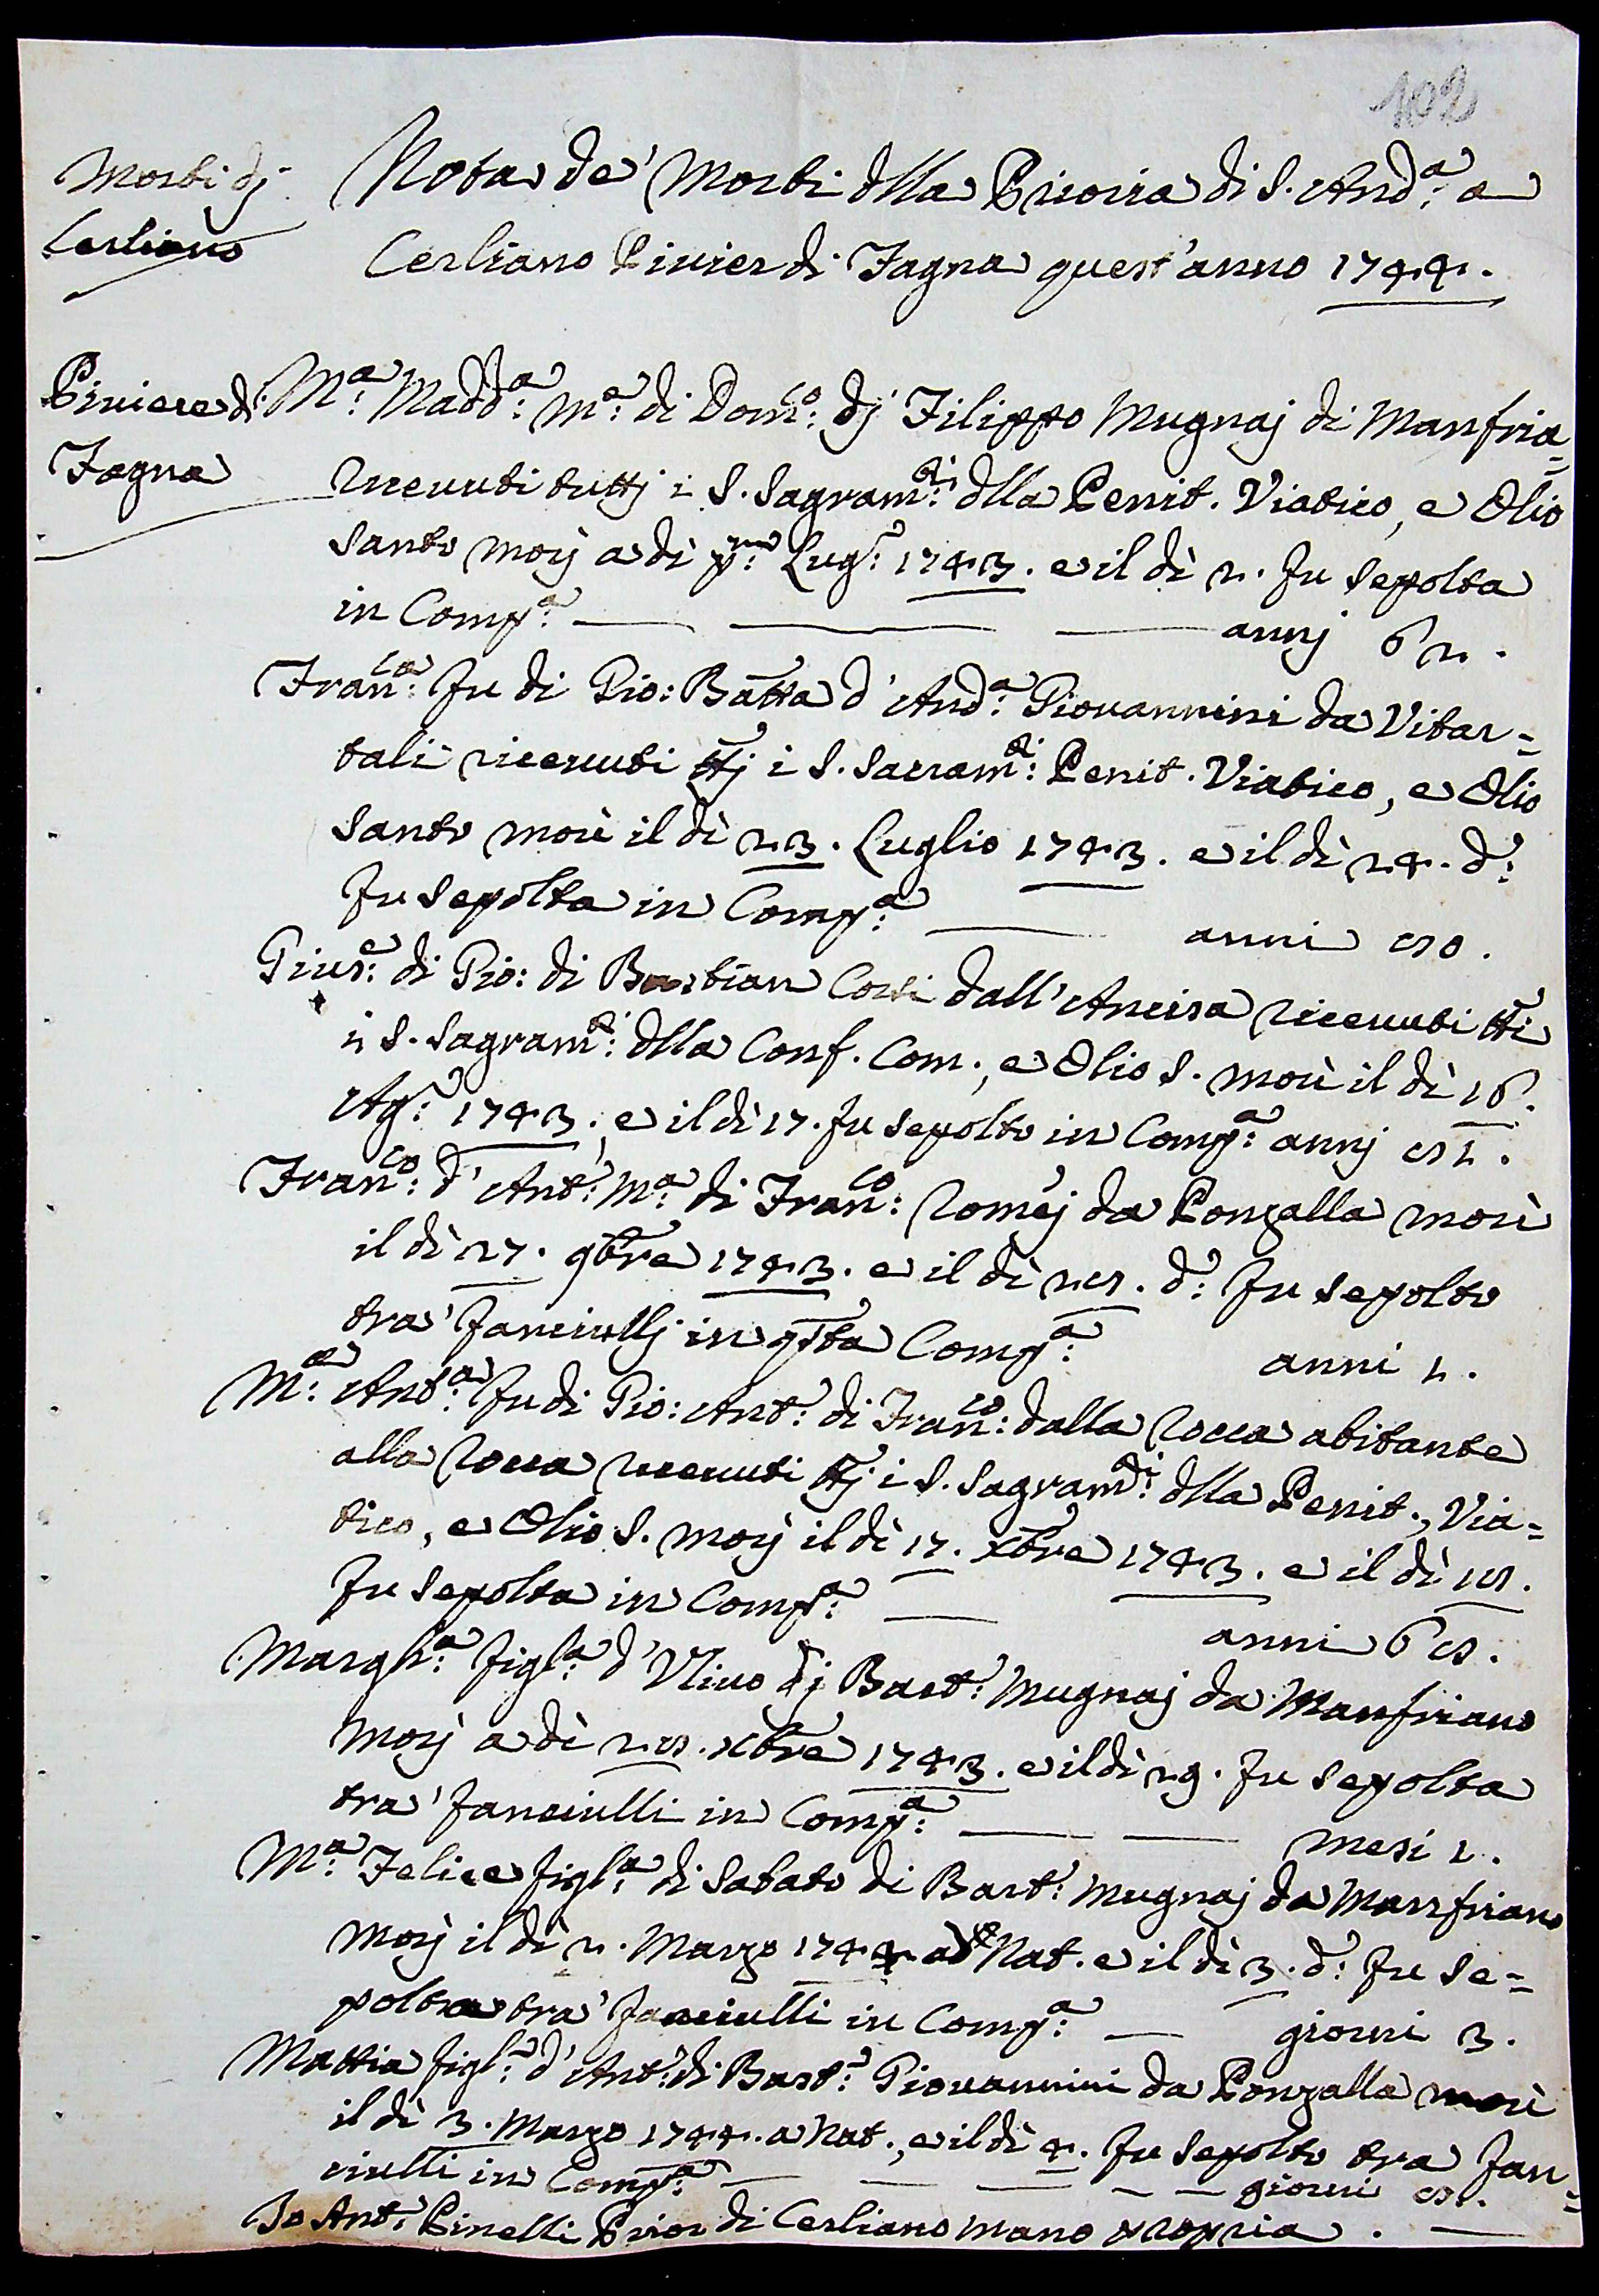 102
Morti di
Cerliano
Nota de' Morti dlla Prioria di S. And.a a
Cerliano Pivier di Fagna quest'anno 1744.
Piviere di
Fagna
M.a Madd.a M.e di Dom.co dj Filippo Mugnaj di Manfria=
ricevuti tuttj i S. Sagram.ti dlla Penit. Viatico, e Olio
Santo morj a dì p.mo Lug.o 1743. e il dì 2. fu sepolta
in Comp.a annj 62.
Fran.ca fu di Gio: Batta d'And.a Giovannini da Vitar=
tali ricevuti ttj i S. Sacram.ti Penit. Viatico, e Olio
Santo morì il dì 23. Luglio 1743. e il dì 24. d.o
fu sepolta in Comp.a anni 80.
Gius.e di Gio: di Bastian Corsi dall'Ancisa ricevuti tti
i S. Sagram.ti dlla Conf. Com., e Olio S. morì il dì 16.
Ag.o 1743. e il dì 17. fu sepolto in Comp.a annj 81.
Fran.co d'Ant.o M.a di Fran.co Romej da Ponzalla morì
il dì 27. 9bre 1743. e il dì 28. d.o fu sepolto
tra' fanciullj in qsta Comp.a anni 1.
M.a Ant.a fu di Gio: Ant.o di Fran.co dalla Rocca abitante
alla Rocca ricevuti ttj i S. Sagram.ti dlla Penit., Via=
tico, e Olio S. morj il dì 17. Xbre 1743. e il dì 18.
fu sepolta in Comp.a anni 68.
Margh.a figl.a d'Ulivo dj Bart.o Mugnaj da Manfriano
morj a dì 28. Xbre 1743. e il dì 29. fu sepolta
tra' fanciulli in Comp.a mesi 1.
M.a Felice figl.a di Sabato di Bart.o Mugnaj da Manfriano
morj il dì 2. Marzo 1744. a Nat. e il dì 3. d.o fu se=
polta tra' fanciulli in Comp.a giorni 3.
Mattia figl.o d'Ant.o di Bart.o Giovannini da Ponzalla morì
il dì 3. Marzo 1744. a Nat., e il dì 4. fu sepolto tra fan=
ciulli in Comp.a giorni 8.
Io Ant.o Pinelli Prior di Cerliano mano propria.